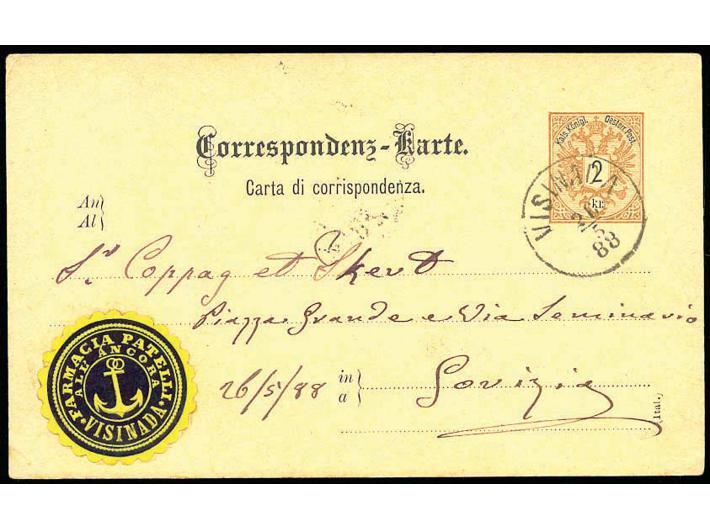 Correspondenz-Karte.
Carta di corrispondenza.
Kais. Königl. Oesterr. Post.
2
kr.
VISINADA
88
An
Al
Sr. Coppag et Skert
Piazza Grande e Via Seminario
26/5/88
in
a
Gorizia
(Ital.)
FARMACIA PATELLI
ALL' ANCORA
VISINADA